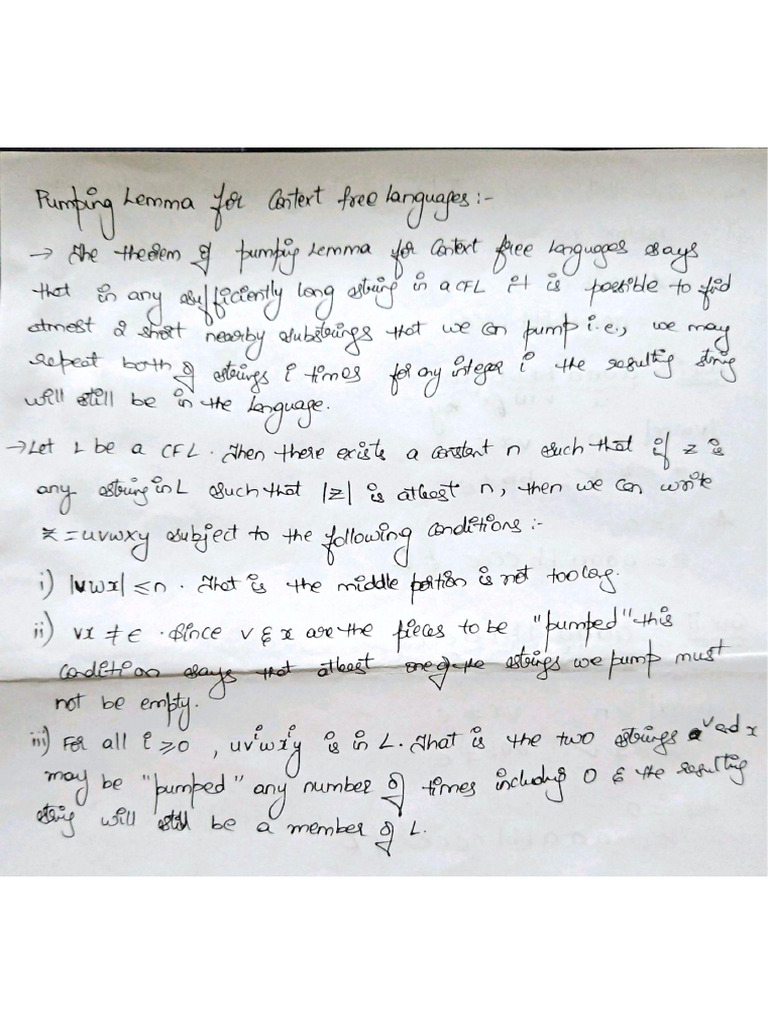 Pumping Lemma for Context free languages :-
→ The theorem of pumping Lemma for Context free languages says
that in any sufficiently long string in a CFL it is possible to find
atmost 2 short nearby substrings that we can pump i.e., we may
repeat both of strings i times for any integer i the resulting string
will still be in the language.
→ Let L be a CFL. Then there exists a constant n such that if z is
any string in L such that |z| is atleast n, then we can write
z = uvwxy subject to the following conditions :-
i) |vwx| ≤ n. That is the middle portion is not too long.
ii) vx ≠ ϵ. Since v & x are the pieces to be "pumped" this
condition says that atleast one of the strings we pump must
not be empty.
iii) For all i ≥ 0, uvⁱwxⁱy is in L. That is the two strings v and x
may be "pumped" any number of times including 0 & the resulting
string will still be a member of L.